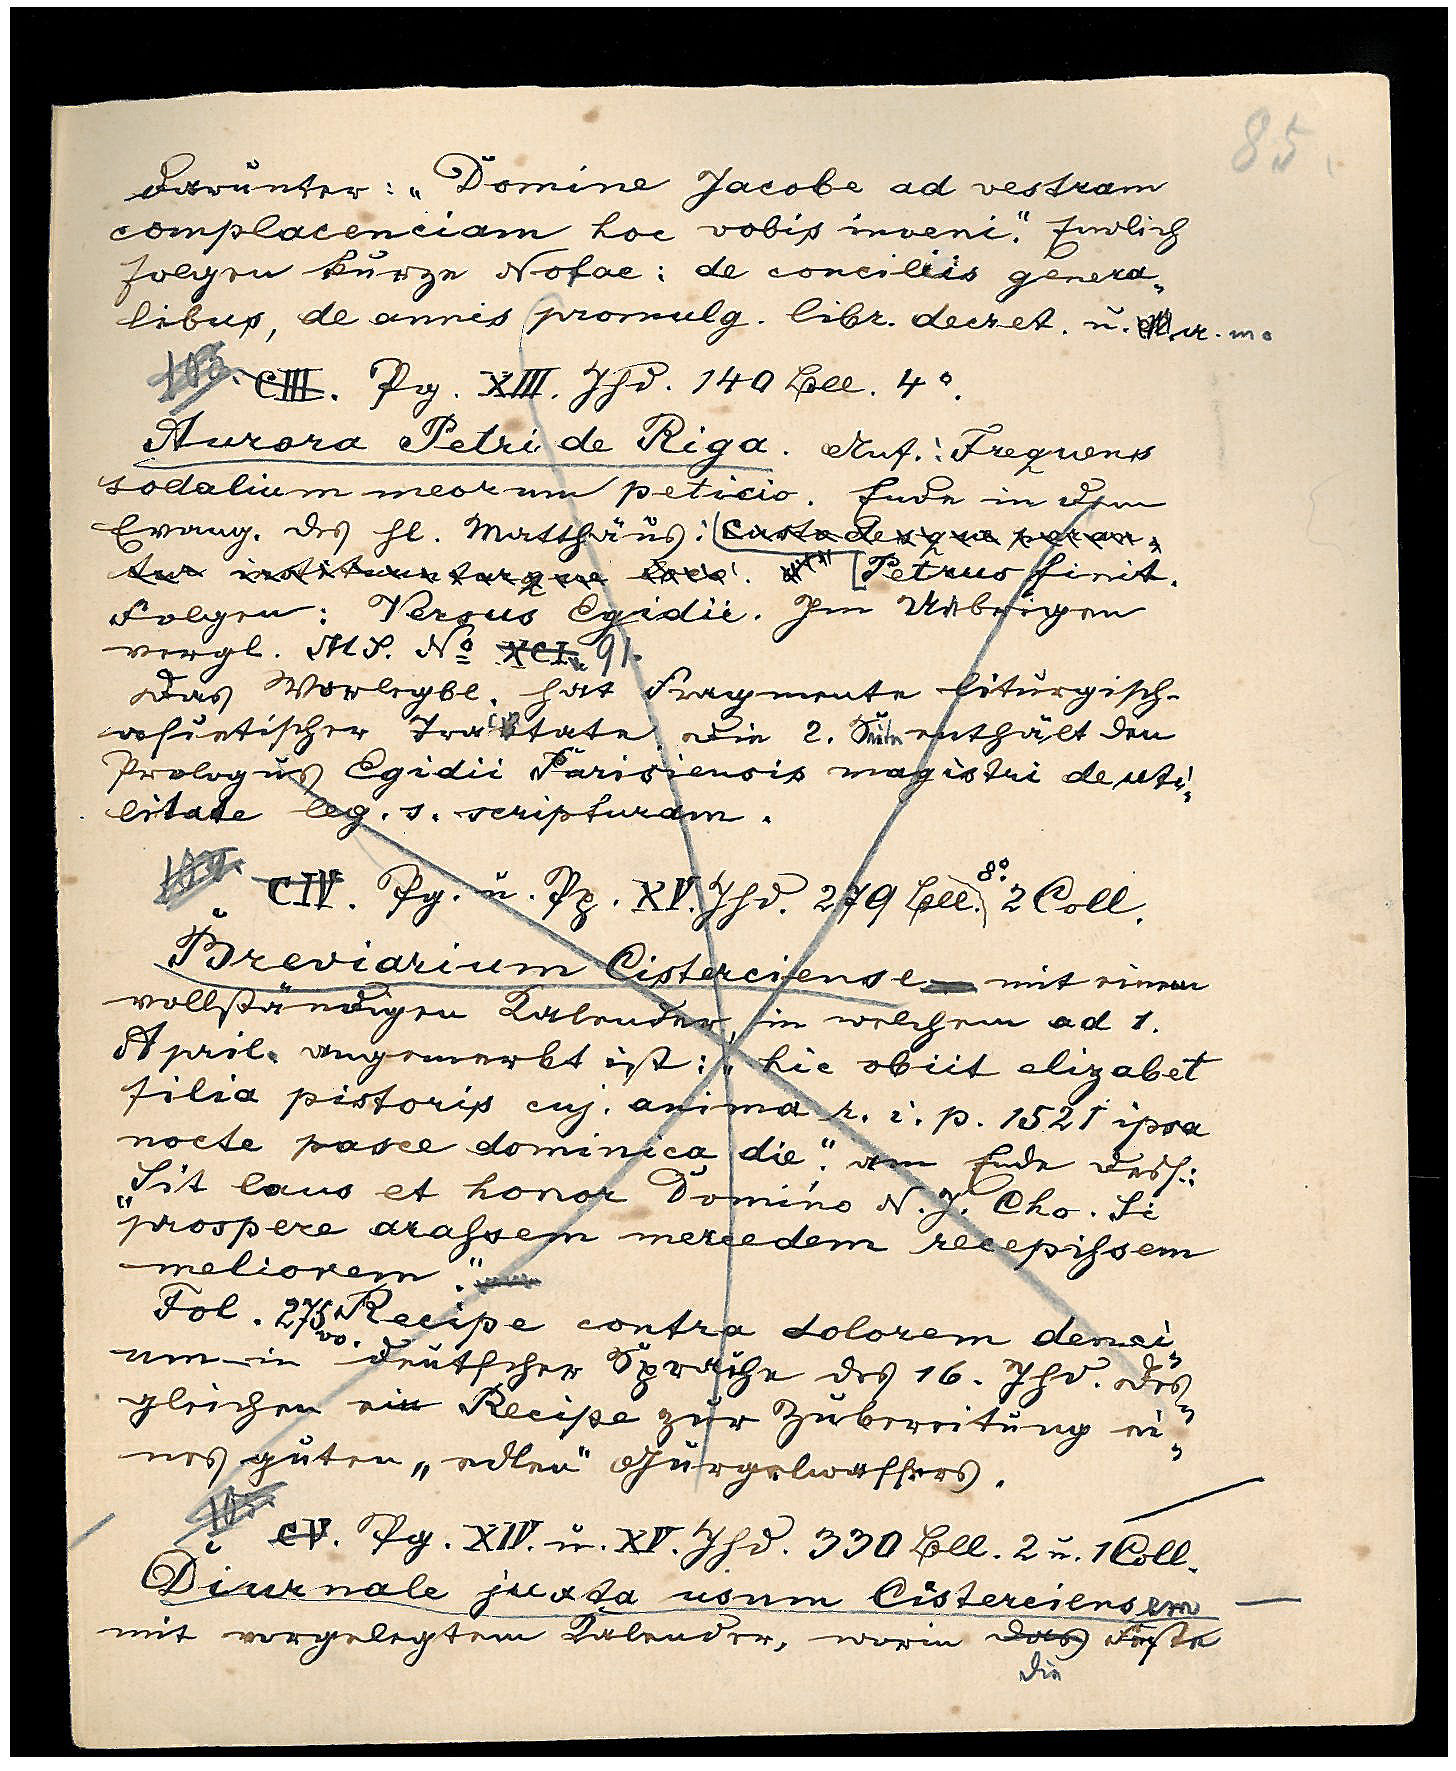 85.
darunter: „Domine Jacobe ad vestram
complacenciam hoc vobis inveni." Endlich
folgen kurze Notae: de conciliis genera„
libus, de annis promulg. libr. decret. u. A. m.
103. CIII. Pg. XIII. Jhd. 140 Bll. 4°.
Aurora Petri de Riga. Anf.: Frequens
sodalium meorum peticio. Ende in dem
Evang. des hl. Matthäus: Custodesque
Petrus finit.
Folgen: Versus Egidii. Im Uebrigen
vergl. MS. No XCI. 91.
Das Vorlegbl. hat Fragmente liturgisch-
asketischer Tractate, die 2. Seite enthält den
Prologus Egidii Parisiensis magistri de uti„
litate leg. s. scripturam.
104. CIV. Pg. u. Pp. XV. Jhd. 279 Bll. 8° 2 Coll.
Breviarium Cisterciense mit einem
vollständigen Kalender, in welchem ad 1.
April. angemerkt ist: „hic obiit elizabet
filia pistoris cuj. anima r. i. p. 1521 ipsa
nocte pasce dominica die". am Ende dess.:
„Sit laus et honor Domino N. J. Cho. Si
„prospere arassem mercedem recepissem
meliorem."
Fol. 275 vo. Recipe contra dolorem denci„
um in deutscher Sprache des 16. Jhd. des„
gleichen ein Recipe zur Zubereitung ei„
nes guten „edlen" Gurgelwassers.
105. CV. Pg. XIV. u. XV. Jhd. 330 Bll. 2 u. 1 Coll.
Diurnale juxta usum Cisterciensem
mit vorgelegtem Kalender, worin das Feste
die